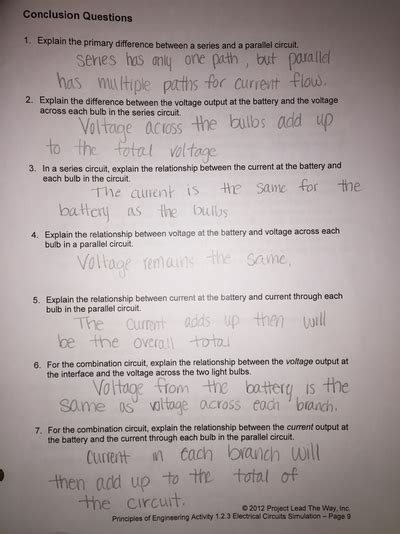 Conclusion Questions
1. Explain the primary difference between a series and a parallel circuit.
series has only one path, but parallel
has multiple paths for current flow.
2. Explain the difference between the voltage output at the battery and the voltage
across each bulb in the series circuit.
Voltage across the bulbs add up
to the total voltage
3. In a series circuit, explain the relationship between the current at the battery and
each bulb in the circuit.
The current is the same for the
battery as the bulbs
4. Explain the relationship between voltage at the battery and voltage across each
bulb in a parallel circuit.
Voltage remains the same.
5. Explain the relationship between current at the battery and current through each
bulb in the parallel circuit.
The current adds up then will
be the overall total
6. For the combination circuit, explain the relationship between the voltage output at
the interface and the voltage across the two light bulbs.
Voltage from the battery is the
same as voltage across each branch.
7. For the combination circuit, explain the relationship between the current output at
the battery and the current through each bulb in the parallel circuit.
Current in each branch will
then add up to the total of
the circuit.
© 2012 Project Lead The Way, Inc.
Principles of Engineering Activity 1.2.3 Electrical Circuits Simulation – Page 9